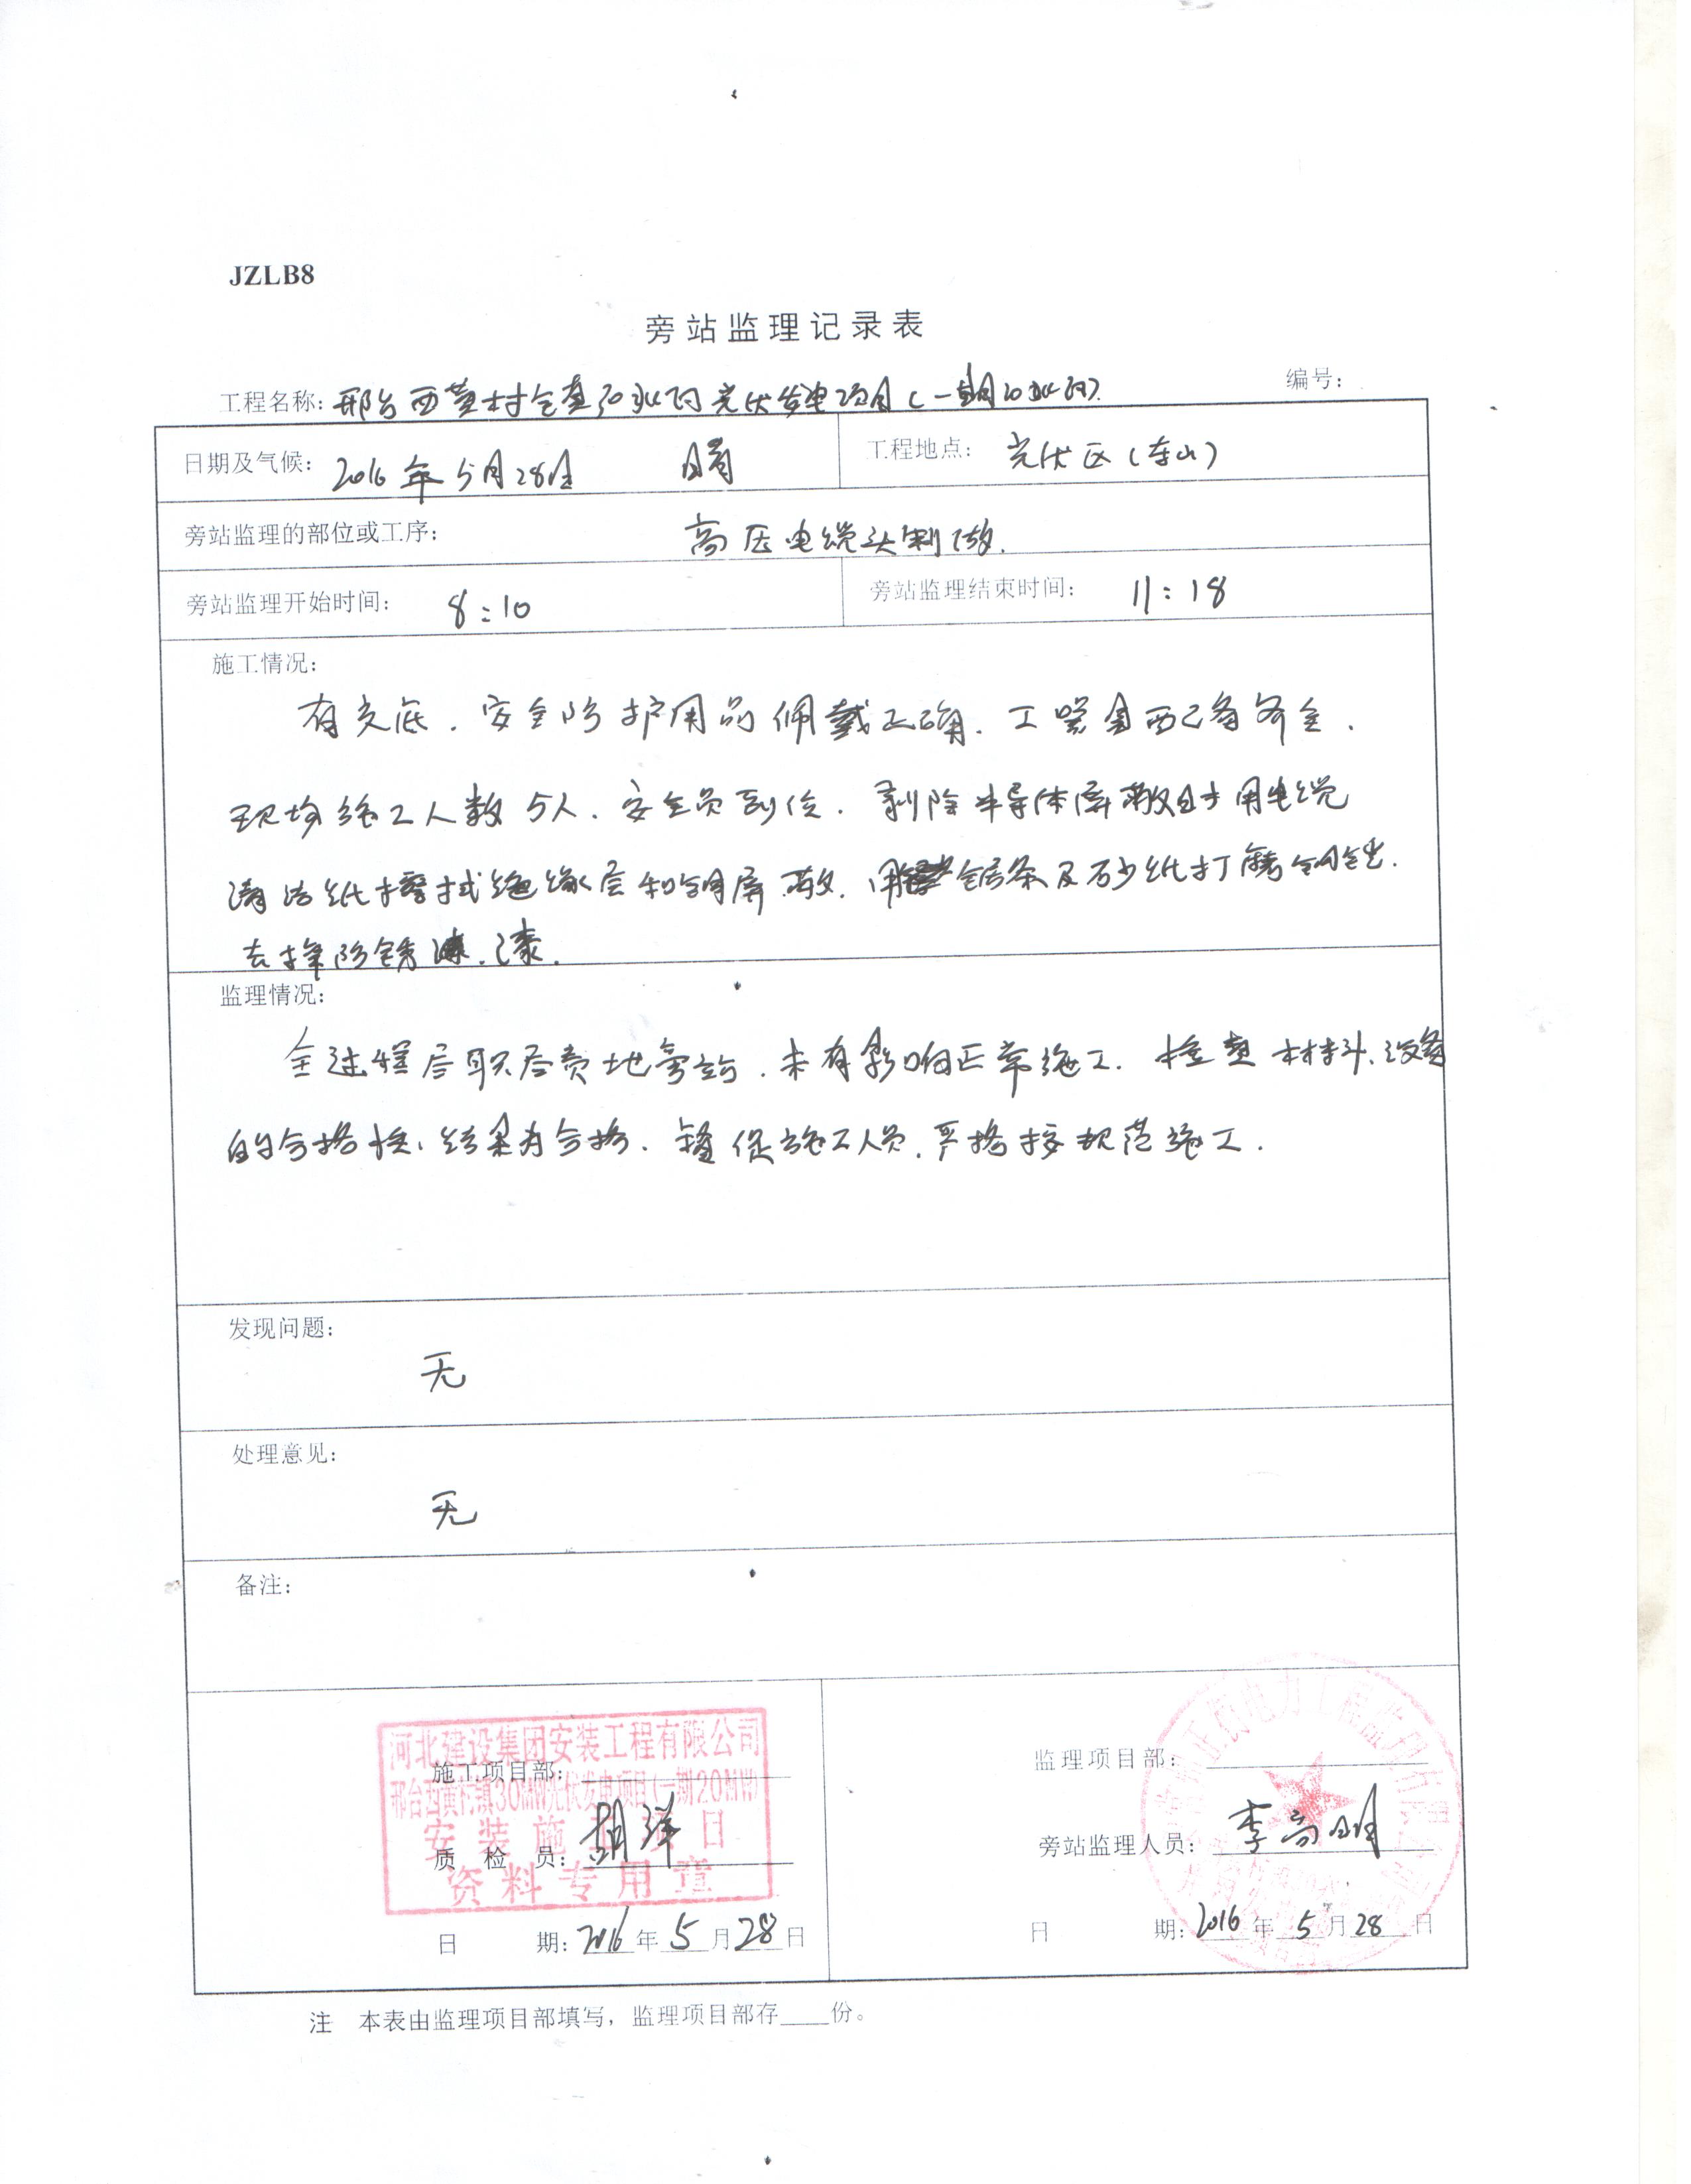 JZLB8
旁站监理记录表
工程名称：邢台西黄村镇30兆瓦光伏发电项目（一期20兆瓦）
编号：
日期及气候：2016年5月28日 晴
工程地点：光伏区（东山）
旁站监理的部位或工序：高压电缆头制做.
旁站监理开始时间：8:10
旁站监理结束时间：11:18
施工情况：
有交底．安全防护用品佩戴正确．工器具配备齐全．
现场施工人数5人．安全员到位．剥除半导体屏蔽时用电缆
清洁纸擦拭绝缘层和铜屏蔽．用锯条及砂纸打磨钢铠．
去掉防锈漆．
监理情况：
全过程尽职尽责地旁站．未有影响正常施工．检查材料、设备
的合格性，结果为合格．督促施工人员，严格按规范施工．
发现问题：
无
处理意见：
无
备注：
河北建设集团安装工程有限公司
邢台西黄村镇30MW光伏发电项目(一期20MW)
安装施工项目
资料专用章
施工项目部：
质检员：胡洋
日期：2016年5月28日
监理项目部：
旁站监理人员：李高明
日期：2016年5月28日
注 本表由监理项目部填写，监理项目部存____份。